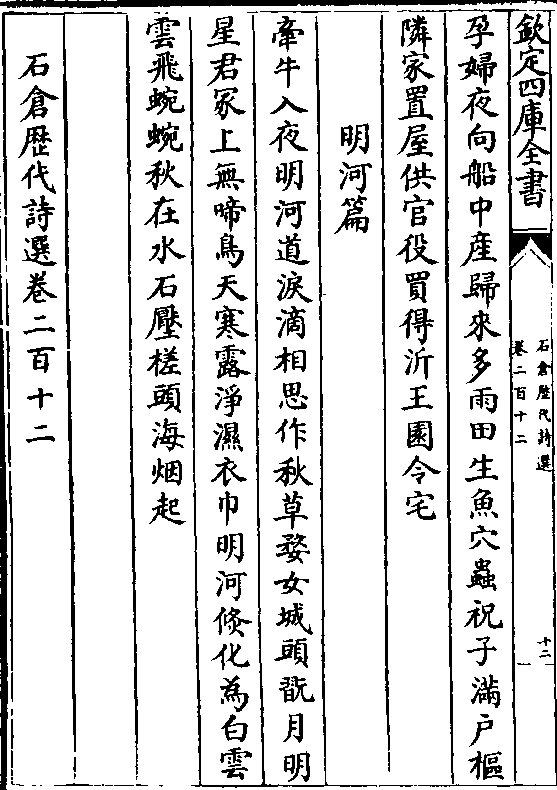 欽定四庫全書
石倉歴代詩選
卷二百十二
十二
孕婦夜向船中産歸來多雨田生魚穴蟲祝子滿户樞
隣家置屋供官役買得沂王園令宅
明河篇
牽牛入夜明河道淚滴相思作秋草婺女城頭翫月明
星君冢上無啼鳥天寒露淨濕衣巾明河倐化為白雲
雲飛蜿蜿秋在水石壓槎頭海烟起
石倉歴代詩選卷二百十二